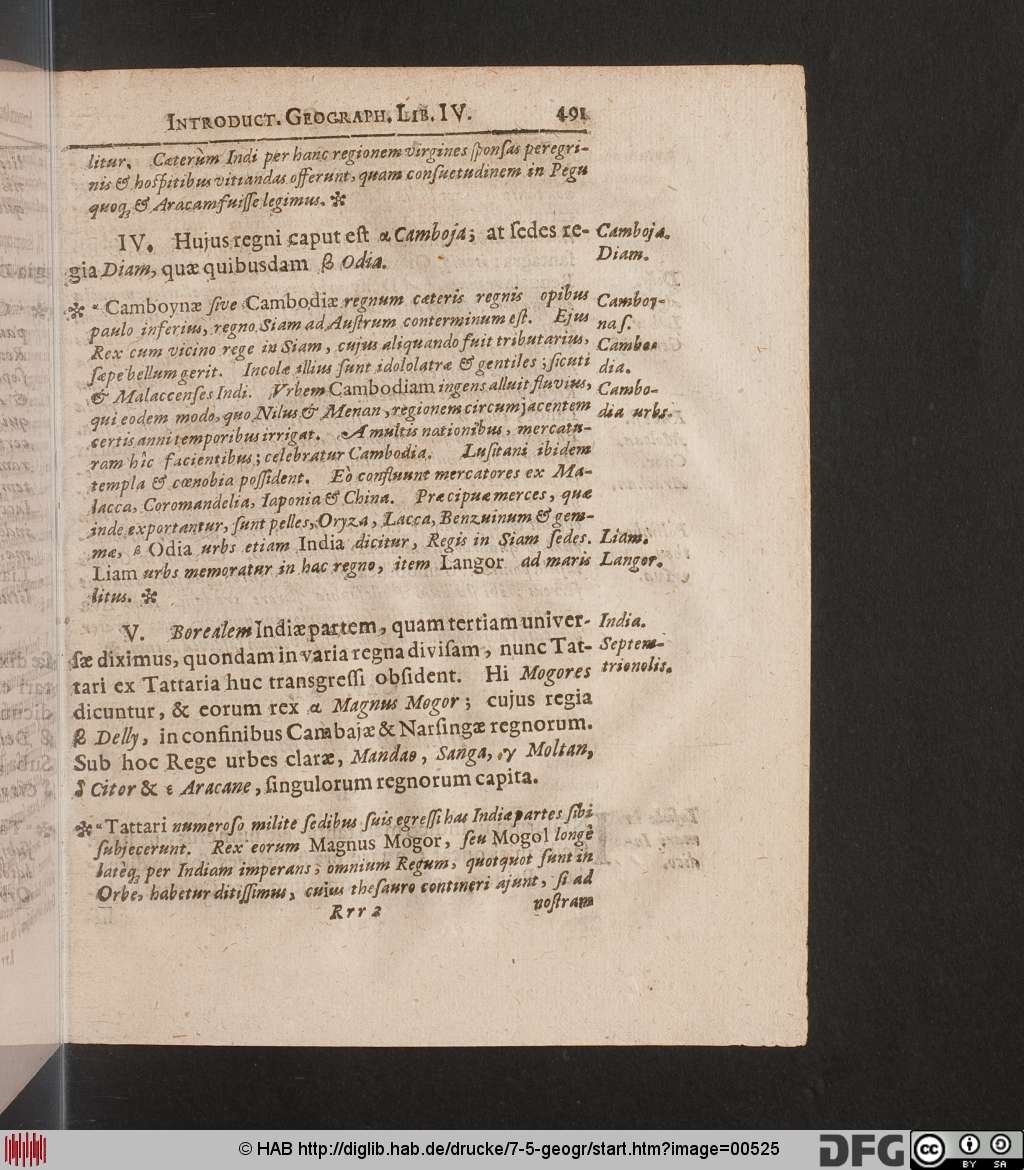 INTRODUCT. GEOGRAPH. LIB. IV. 491
litur. Cæterùm Indi per hanc regionem virgines sponsas peregri-
nis & hospitibus vitiandas offerunt, quam consuetudinem in Pegu
quoq; & Aracam fuisse legimus. ✻
IV. Hujus regni caput est α Camboja; at sedes re-
gia Diam, quæ quibusdam β Odia.
Camboja.
Diam.
✻ α Camboynæ sive Cambodiæ regnum cæteris regnis opibus
paulo inferius, regno Siam ad Austrum conterminum est. Ejus
Rex cum vicino rege in Siam, cujus aliquando fuit tributarius,
sæpe bellum gerit. Incolæ illius sunt idololatræ & gentiles; sicuti
& Malaccenses Indi. Vrbem Cambodiam ingens alluit fluvius,
qui eodem modo, quo Nilus & Menan, regionem circumjacentem
certis anni temporibus irrigat. A multis nationibus, mercatu-
ram hîc facientibus; celebratur Cambodia. Lusitani ibidem
templa & cœnobia possident. Eò confluunt mercatores ex Ma-
lacca, Coromandelia, Iaponia & China. Præcipuæ merces, quæ
inde exportantur, sunt pelles, Oryza, Lacca, Benzuinum & gem-
mæ, β Odia urbs etiam India dicitur, Regis in Siam sedes.
Liam urbs memoratur in hac regno, item Langor ad maris
litus. ✻
Camboy-
nas.
Cambo-
dia.
Cambo-
dia urbs.
Liam.
Langor.
V. Borealem Indiæ partem, quam tertiam univer-
sæ diximus, quondam in varia regna divisam, nunc Tat-
tari ex Tattaria huc transgressi obsident. Hi Mogores
dicuntur, & eorum rex α Magnus Mogor; cujus regia
β Delly, in confinibus Cambajæ & Narsingæ regnorum.
Sub hoc Rege urbes claræ, Mandao, Sanga, γ Moltan,
δ Citor & ε Aracane, singulorum regnorum capita.
India.
Septem-
trionolis.
✻ α Tattari numeroso milite sedibus suis egressi has Indiæ partes sibi
subjecerunt. Rex eorum Magnus Mogor, seu Mogol longè
latèq; per Indiam imperans, omnium Regum, quotquot sunt in
Orbe, habetur ditissimus, cujus thesauro contineri ajunt, si ad
Rrr 2 nostram
© HAB http://diglib.hab.de/drucke/7-5-geogr/start.htm?image=00525
DFG
cc BY SA